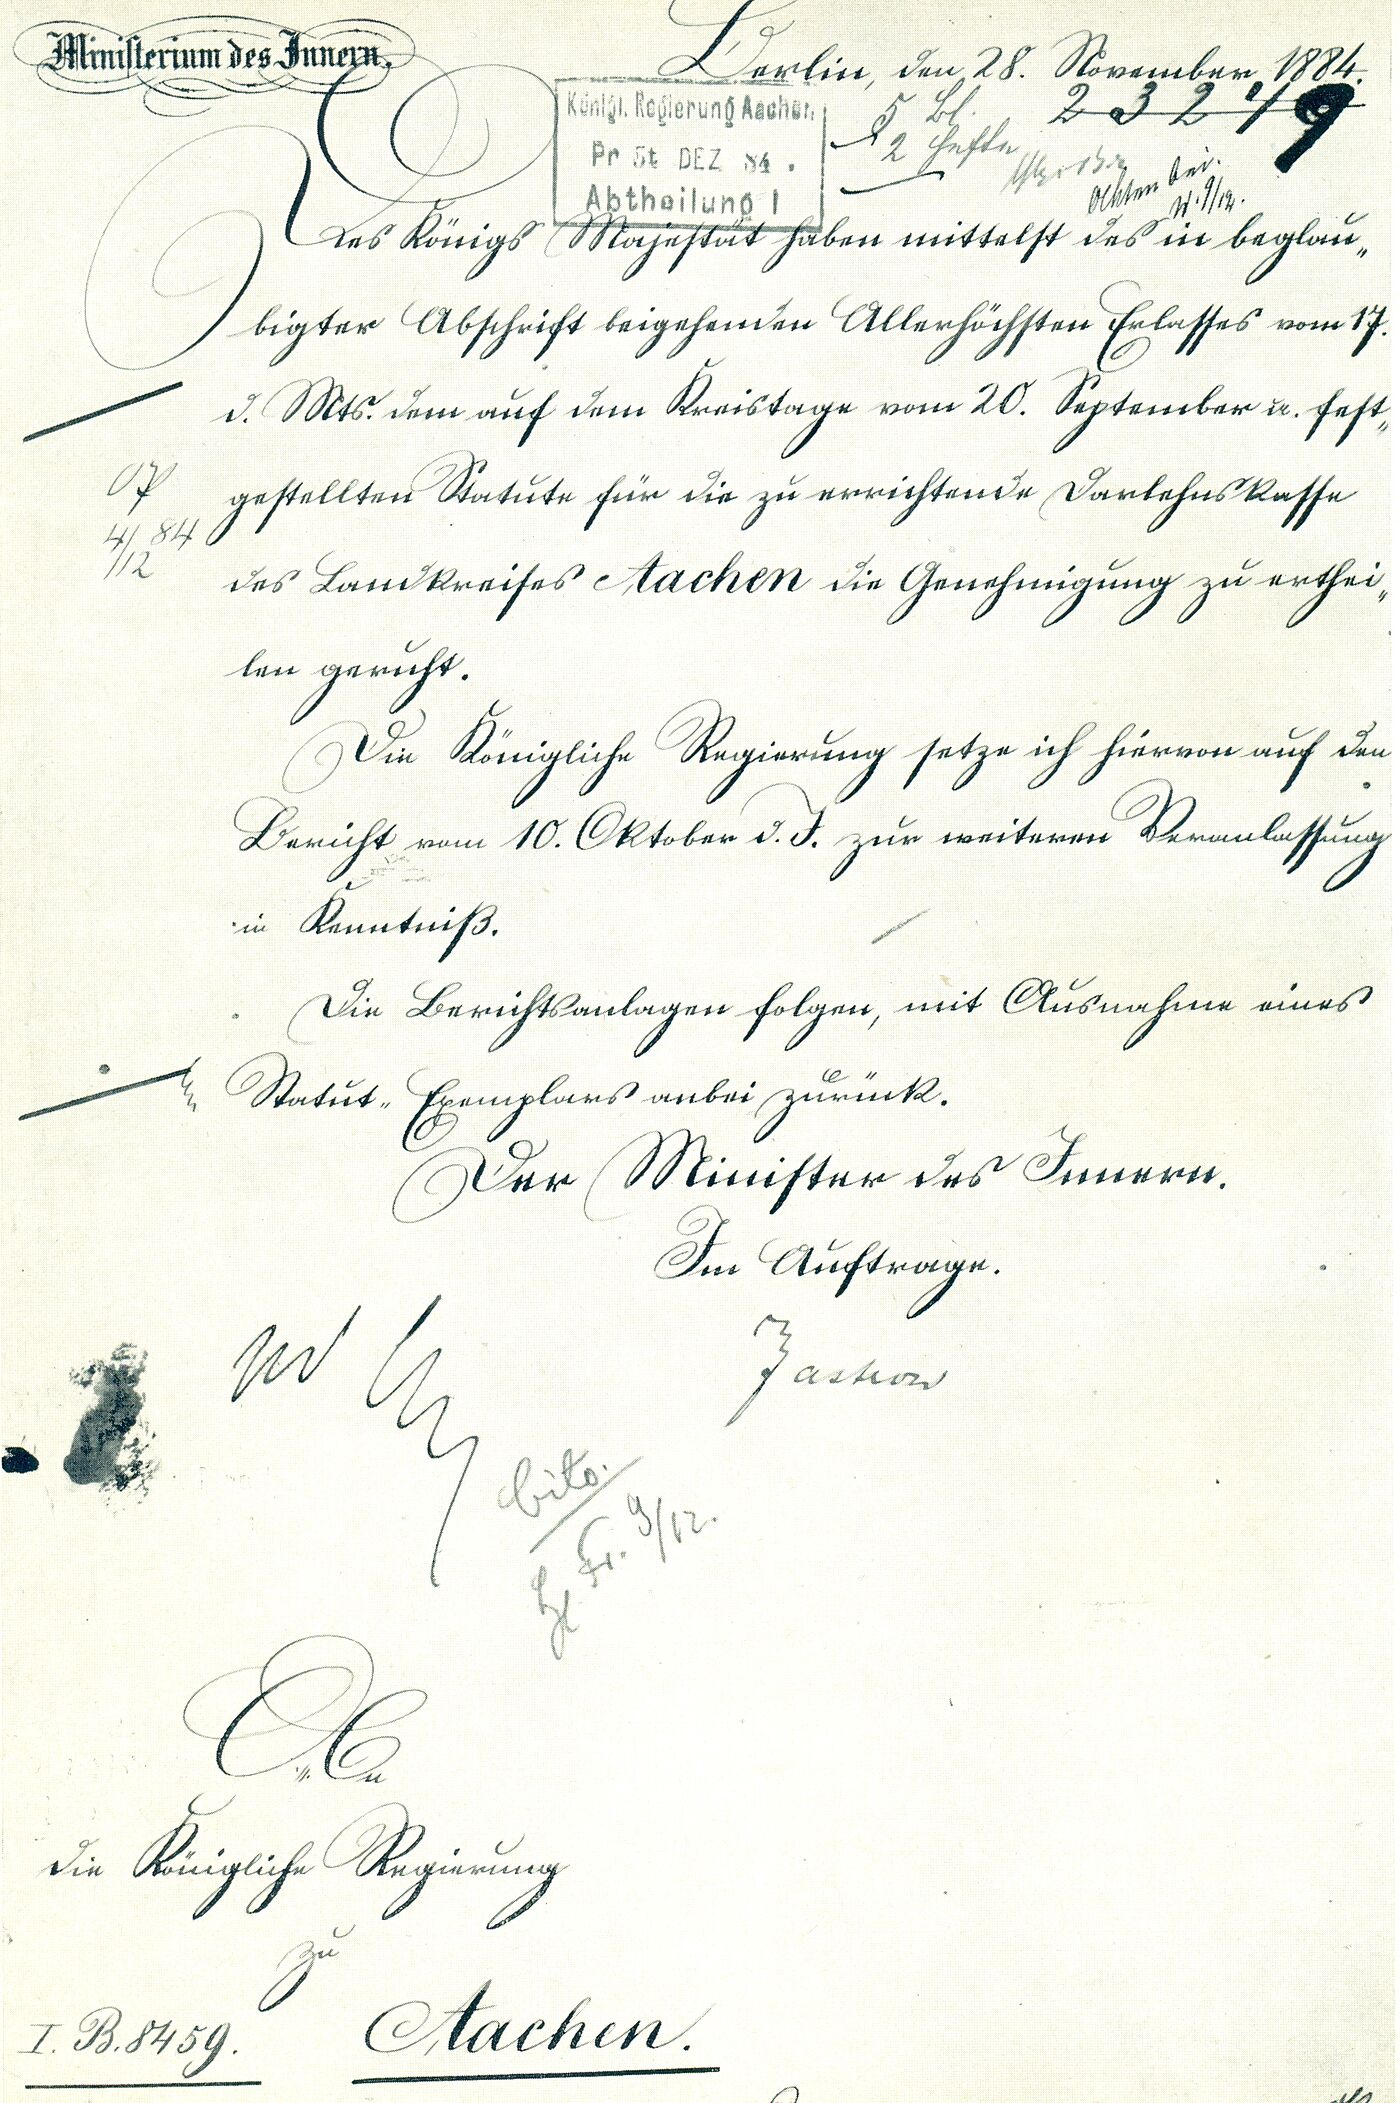 Ministerium des Innern.
Berlin, den 28. November 1884.
Königl. Regierung Aachen
Pr 5t DEZ 84.
Abtheilung I
5 Bl.
2 Hefte
23279
Des Königs Majestät haben mittelst des in beglau„
bigter Abschrift beigehenden Allerhöchsten Erlasses vom 17.
d. Mts. dem auf dem Kreistage vom 20. September cr. fest„
gestellten Statute für die zu errichtende Darlehnskasse
4/12 84
des Landkreises Aachen die Genehmigung zu erthei„
len geruht.
Die Königliche Regierung setze ich hiervon auf den
Bericht vom 10. Oktober d. J. zur weiteren Veranlassung
in Kenntniß.
Die Berichtsanlagen folgen, mit Ausnahme eines
Statut„ Exemplars anbei zurück.
Der Minister des Innern.
Im Auftrage.
Zastrow
cito.
9/12.
An
die Königliche Regierung
zu
Aachen.
I. B. 8459.